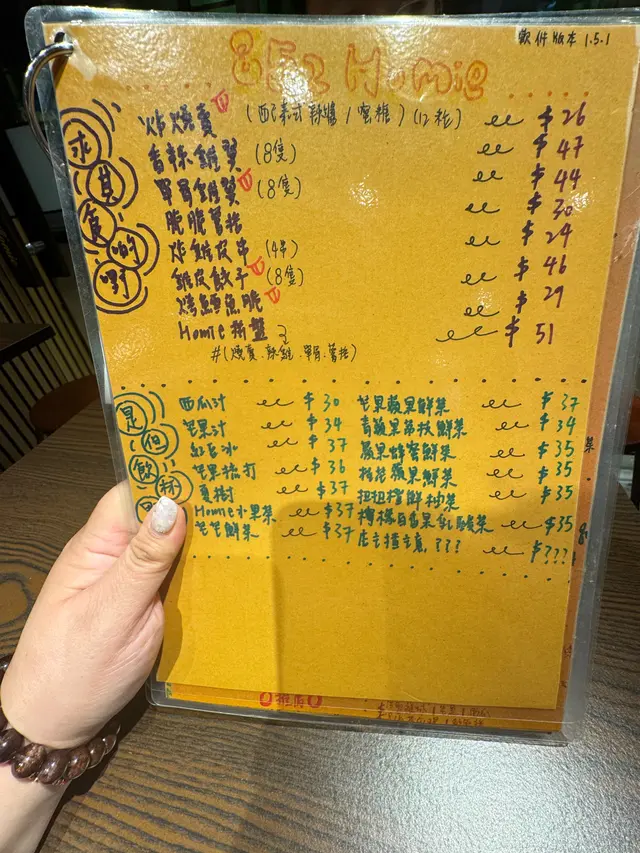 軟件版本 1.5.1
852 Homie
求其食啲嘢
炸燒賣 (西己泰式辣醬 / 蜜糖) (12粒) $26
香辣雞翼 (8隻) $47
單骨雞翼 (8隻) $44
脆脆薯格 $30
炸雞皮串 (4串) $24
雞皮餃子 (8隻) $46
烤鱈魚脆 $29
Homie拼盤 $51
#(燒賣、辣雞、單骨、薯格)
是但飲杯
西瓜汁 $30
芒果汁 $34
紅豆冰 $37
芒果梳打 $36
夏樹 $37
Homie水果菜 $37
芒芒鮮菜 $37
芒果蘋果鮮菜 $37
青蘋果菜 $34
蘋果蜂蜜鮮菜 $35
桔花蘋果鮮菜 $35
扭扭擰鮮柚菜 $35
檸檬百香果乳酸菜 $35
店主揸主意.??? $???
推廣